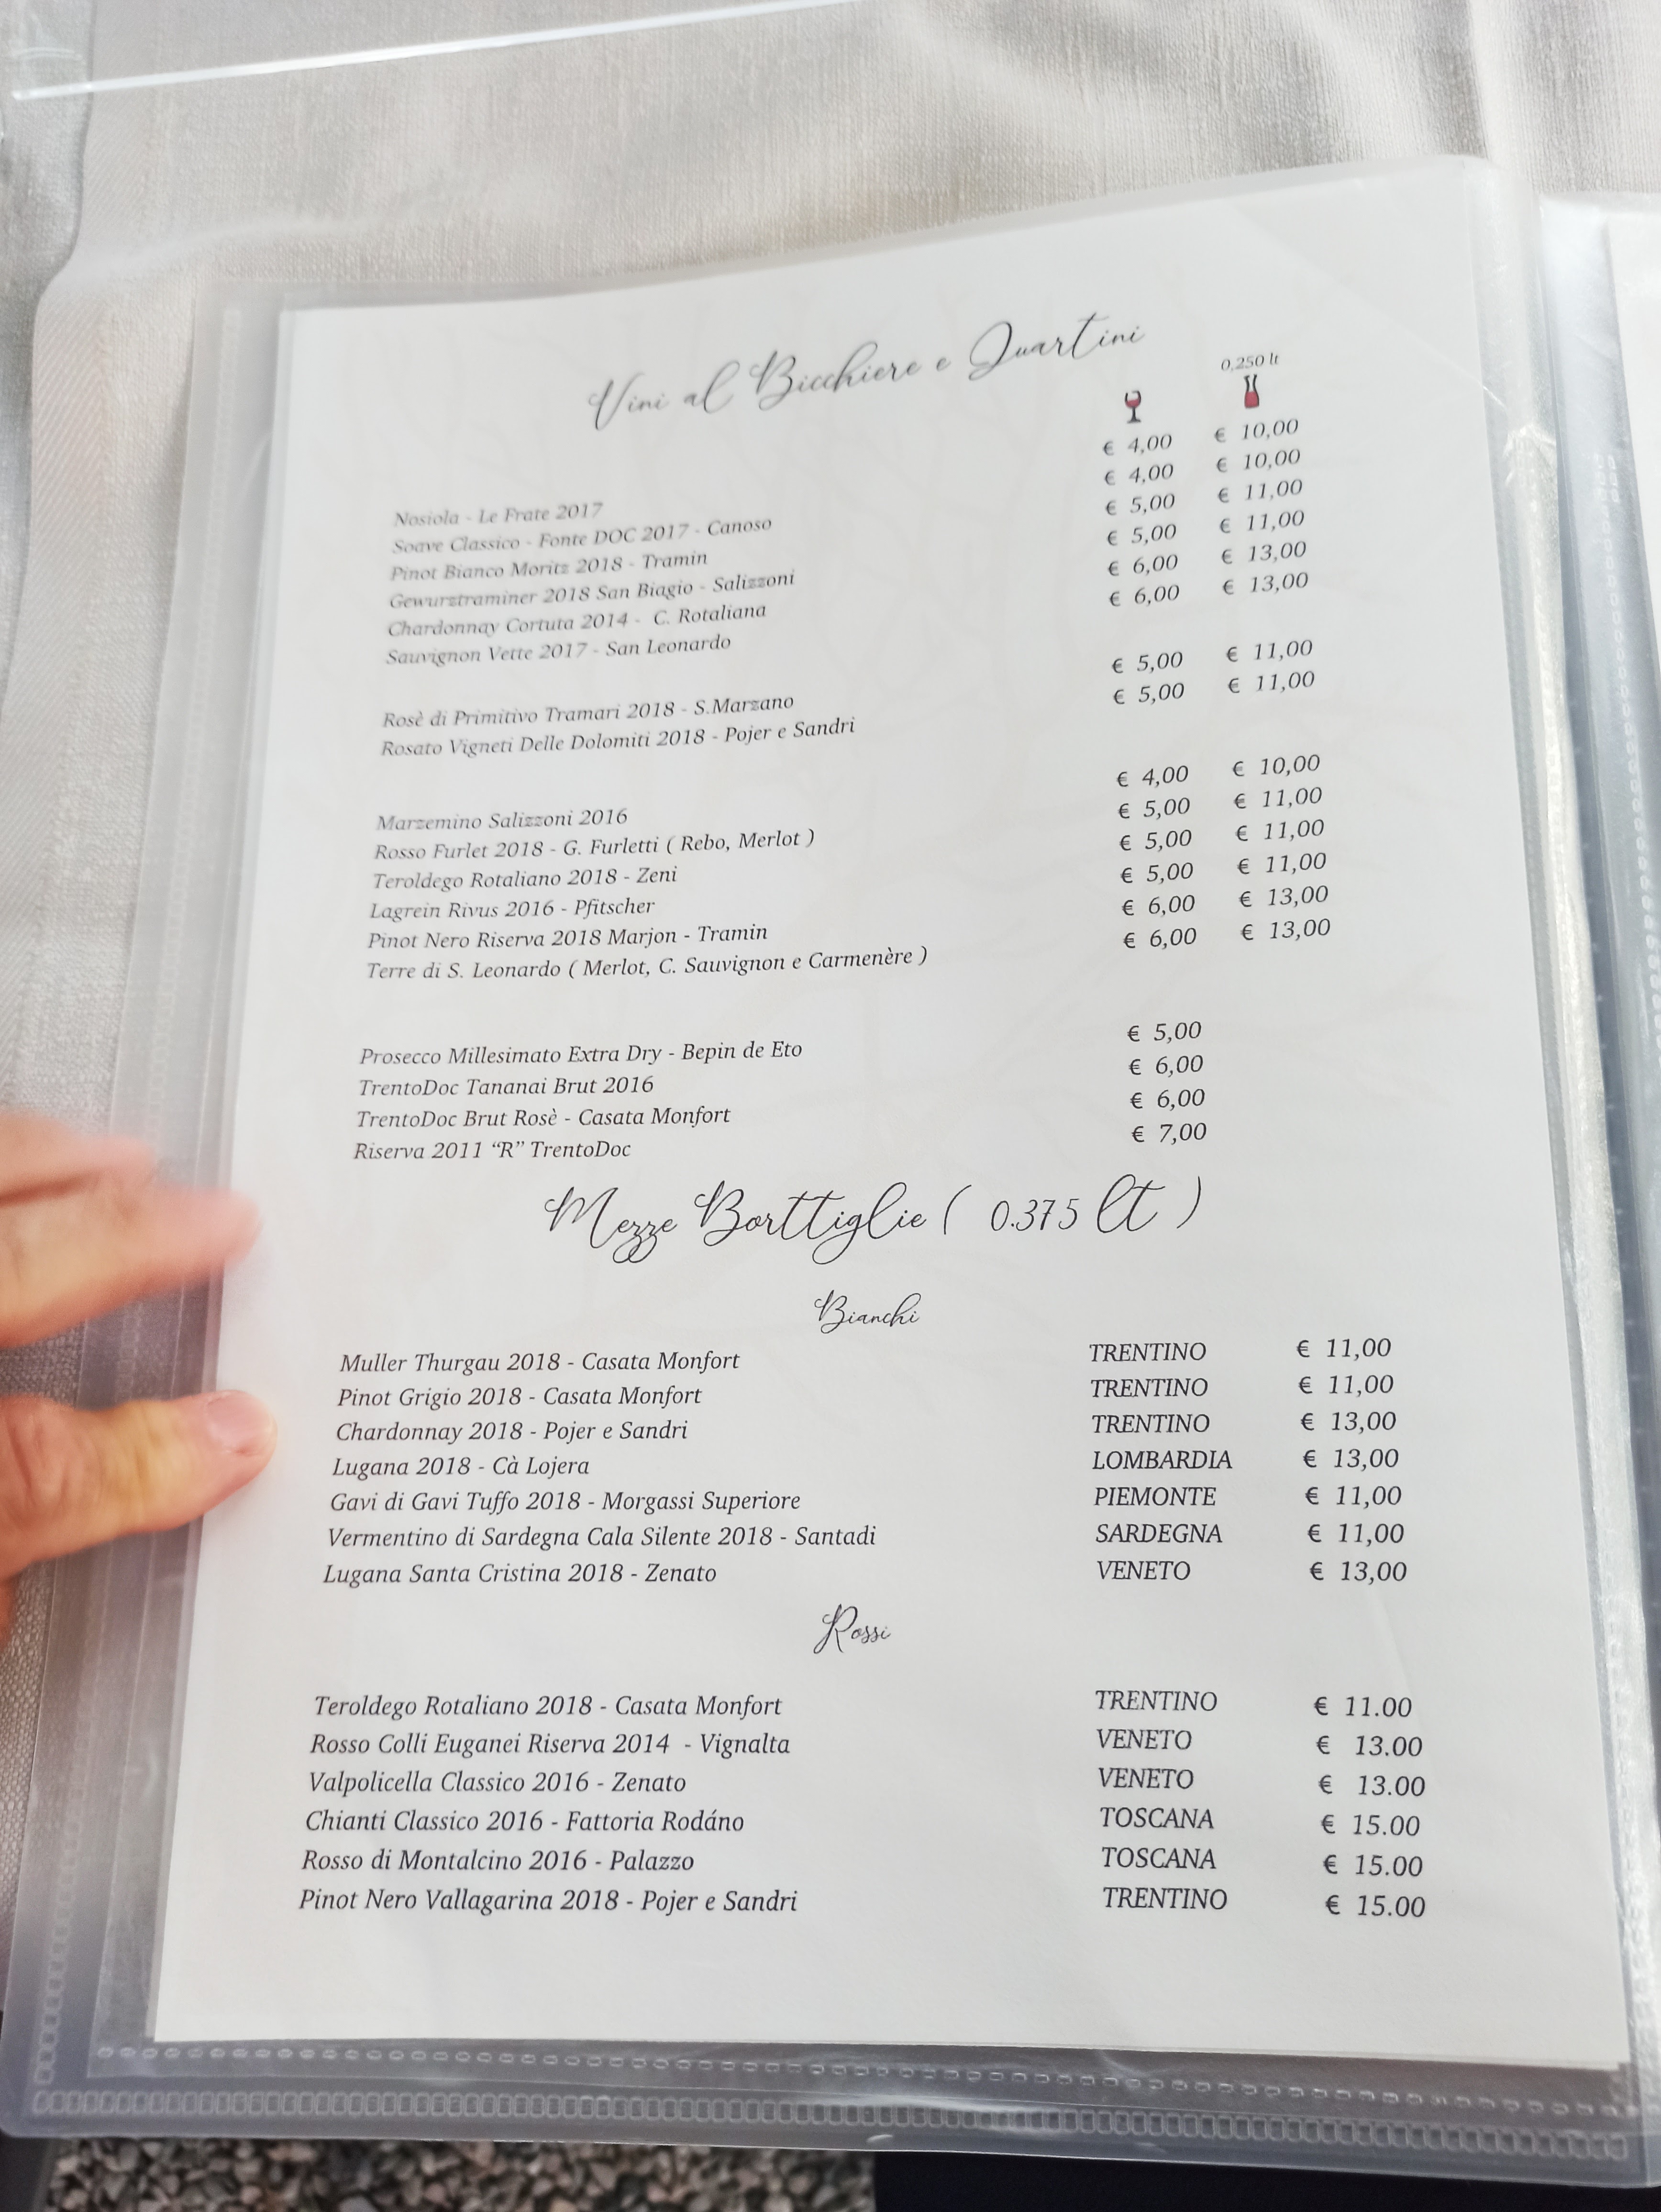 Vini al Bicchiere e Quartini
0,250 lt
Nosiola - Le Frate 2017 € 4,00 € 10,00
Soave Classico - Fonte DOC 2017 - Canoso € 4,00 € 10,00
Pinot Bianco Moritz 2018 - Tramin € 5,00 € 11,00
Gewurztraminer 2018 San Biagio - Salizzoni € 5,00 € 11,00
Chardonnay Cortuta 2014 - C. Rotaliana € 6,00 € 13,00
Sauvignon Vette 2017 - San Leonardo € 6,00 € 13,00
Rosè di Primitivo Tramari 2018 - S.Marzano € 5,00 € 11,00
Rosato Vigneti Delle Dolomiti 2018 - Pojer e Sandri € 5,00 € 11,00
Marzemino Salizzoni 2016 € 4,00 € 10,00
Rosso Furlet 2018 - G. Furletti ( Rebo, Merlot ) € 5,00 € 11,00
Teroldego Rotaliano 2018 - Zeni € 5,00 € 11,00
Lagrein Rivus 2016 - Pfitscher € 5,00 € 11,00
Pinot Nero Riserva 2018 Marjon - Tramin € 6,00 € 13,00
Terre di S. Leonardo ( Merlot, C. Sauvignon e Carmenère ) € 6,00 € 13,00
Prosecco Millesimato Extra Dry - Bepin de Eto € 5,00
TrentoDoc Tananai Brut 2016 € 6,00
TrentoDoc Brut Rosè - Casata Monfort € 6,00
Riserva 2011 “R” TrentoDoc € 7,00
Mezze Borttiglie ( 0.375 lt )
Bianchi
Muller Thurgau 2018 - Casata Monfort TRENTINO € 11,00
Pinot Grigio 2018 - Casata Monfort TRENTINO € 11,00
Chardonnay 2018 - Pojer e Sandri TRENTINO € 13,00
Lugana 2018 - Cà Lojera LOMBARDIA € 13,00
Gavi di Gavi Tuffo 2018 - Morgassi Superiore PIEMONTE € 11,00
Vermentino di Sardegna Cala Silente 2018 - Santadi SARDEGNA € 11,00
Lugana Santa Cristina 2018 - Zenato VENETO € 13,00
Rossi
Teroldego Rotaliano 2018 - Casata Monfort TRENTINO € 11.00
Rosso Colli Euganei Riserva 2014 - Vignalta VENETO € 13.00
Valpolicella Classico 2016 - Zenato VENETO € 13.00
Chianti Classico 2016 - Fattoria Rodáno TOSCANA € 15.00
Rosso di Montalcino 2016 - Palazzo TOSCANA € 15.00
Pinot Nero Vallagarina 2018 - Pojer e Sandri TRENTINO € 15.00